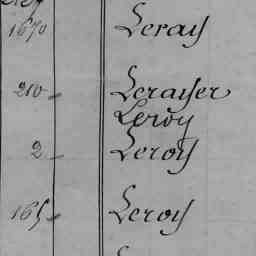 1670 Leray
210 Lerayer
Leroy
2 Leroy
165 Leroy